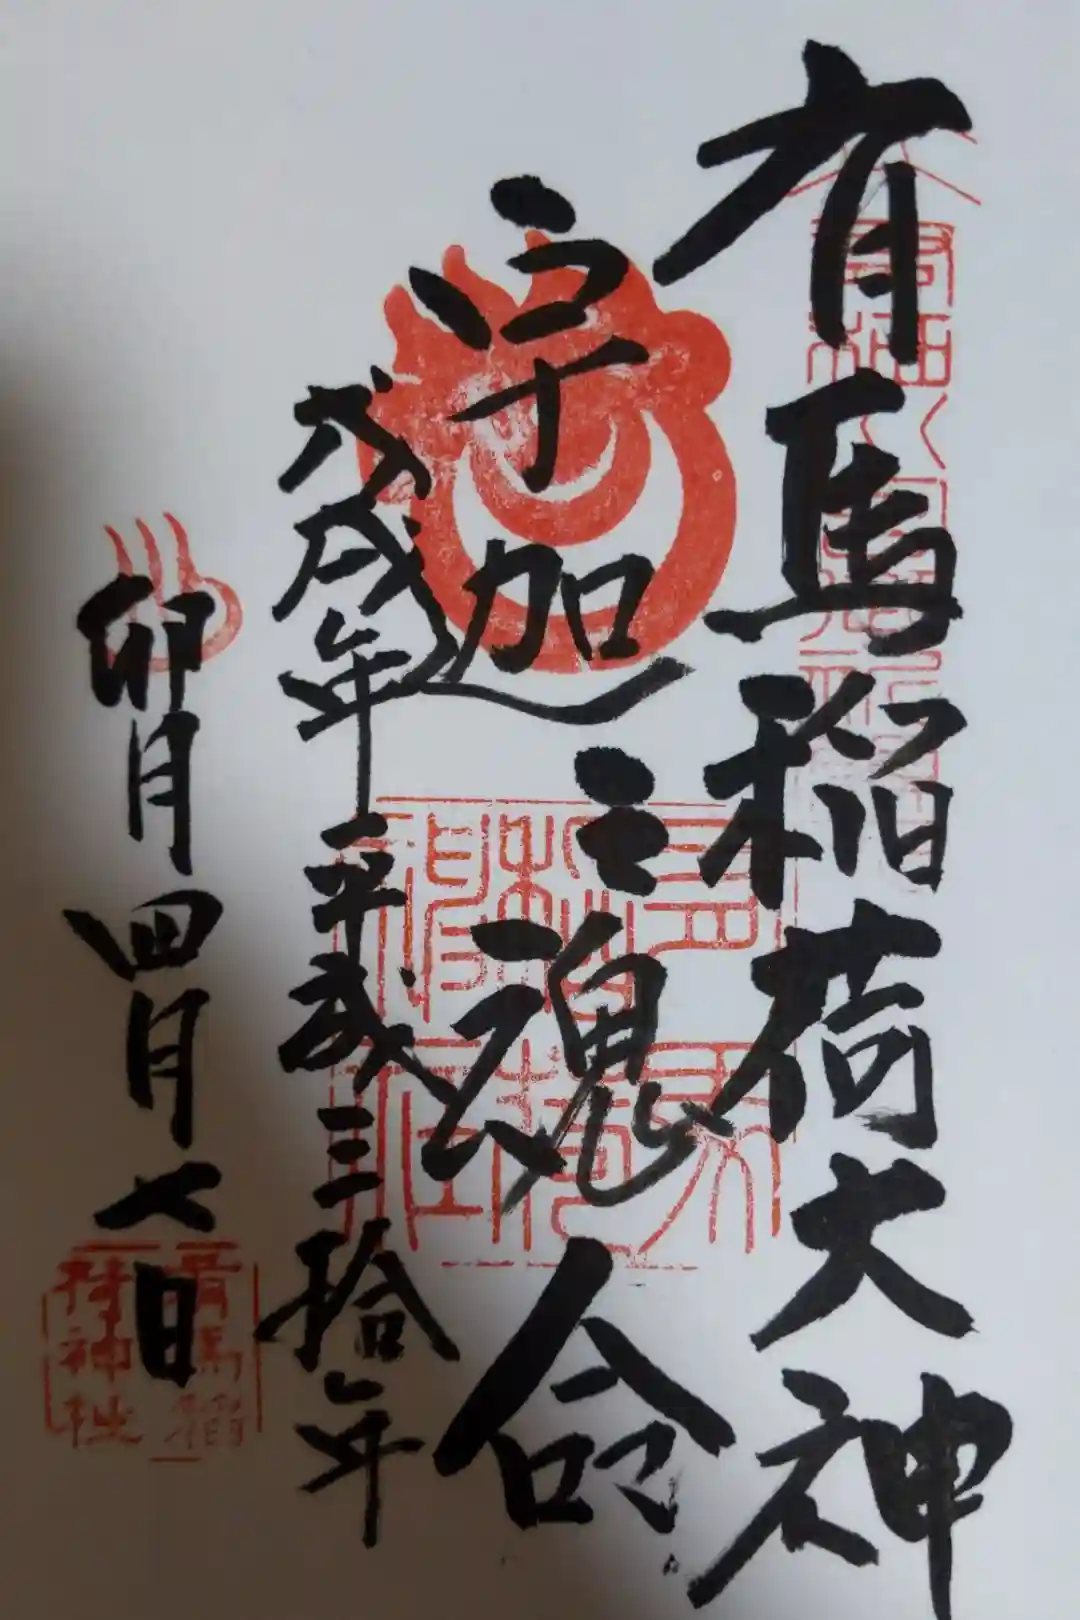 有馬稲荷大神
宇迦之魂命
戊戌年 平成三拾年
卯月四月七日
有馬稲
荷神社